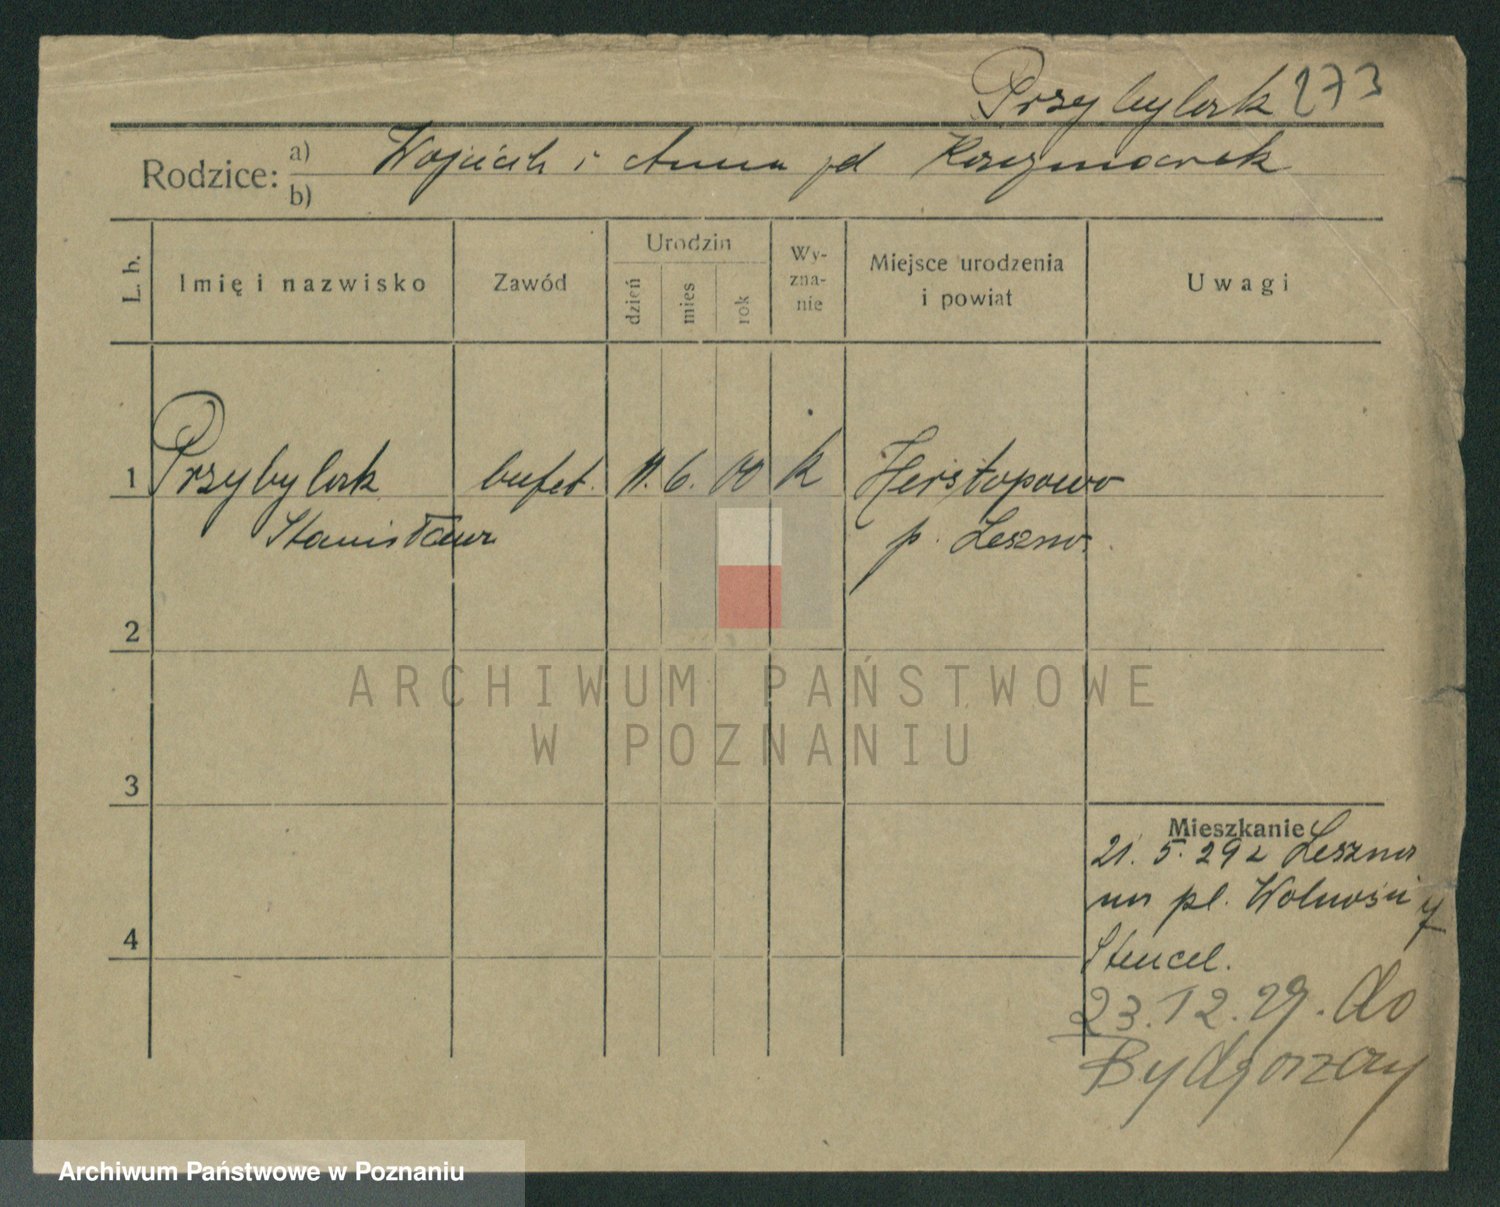 Przybylak 273
Rodzice: a) Wojciech i Anna
b)
L. b.
Imię i nazwisko
Zawód
Urodzin
dzień
mies
rok
Wy-
zna-
nie
Miejsce urodzenia
i powiat
Uwagi
1 Przybylak bufet. 11. 6. 00 k Herstopowo
Stanisława p. Leszno
2
3
4
Mieszkanie
21. 5. 29 z Leszna
na pl. Wolności
Stencel.
23.12.29. do
Bydgoszczy
ARCHIWUM PAŃSTWOWE
W POZNANIU
Archiwum Państwowe w Poznaniu